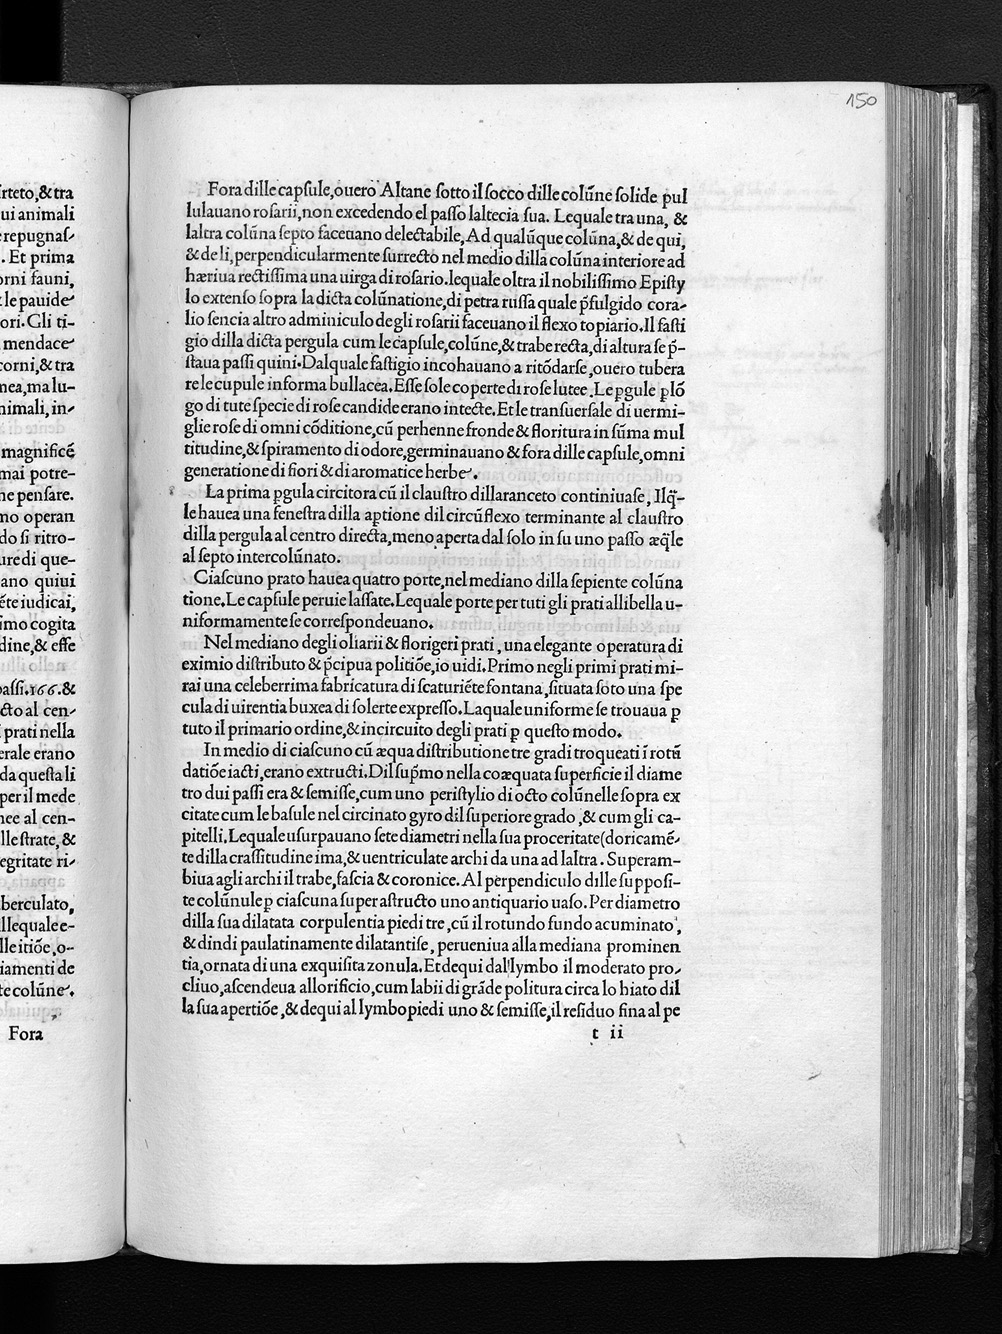 irteto,&tra
ui animali
repugnaſ-
. Et prima
orni fauni,
le pauide
ori. Gli ti-
mendace
corni,& tra
nea,ma lu-
nimali, in-
magnificé
mai potre-
ne penſare.
mo operan
do ſi ritro-
ure di que-
ano quiui
éte iudicai,
imo cogita
dine,& eſſe
paſſi.166.&
cto al cen-
prati nella
erale erano
da queſta li
per il mede
nee al cen-
lle ſtrate, &
egritate ri-
berculato,
llequale e-
lle itiõe, o-
iamenti de
te colũne.
Fora
150
Fora dille capſule, ouero Altane ſotto il ſocco dille colũne ſolide pul
lulauano roſarii,non excedendo el paſſo laltecia ſua. Lequale tra una, &
laltra colũna ſepto faceuano delectabile, Ad qualũque colũna,& de qui,
& de li, perpendicularmente ſurrecto nel medio dilla colũna interiore ad
hæriua rectiſſima una uirga di roſario.lequale oltra il nobiliſſimo Epiſty
lo extenſo ſopra la dicta colũnatione,di petra ruſſa quale p̃fulgido cora-
lio ſencia altro adminiculo degli roſarii faceuano il flexo topiario.Il faſti
gio dilla dicta pergula cum le capſule,colũne,& trabe recta,di altura ſe p̃-
ſtaua paſſi quini. Dalquale faſtigio incohauano a ritõdarſe,ouero tubera
re le cupule informa bullacea. Eſſe ſole coperte di roſe lutee. Le ꝑgule ꝑlõ
go di tute ſpecie di roſe candide erano intecte. Et le tranſuerſale di uermi-
glie roſe di omni cõditione,cũ perhenne fronde & floritura in ſũma mul
titudine,& ſpiramento di odore,germinauano & fora dille capſule,omni
generatione di fiori & di aromatice herbe.
La prima ꝑgula circitora cũ il clauſtro dillaranceto continiuaſe, Ilq̃-
le hauea una feneſtra dilla aꝑtione dil circũflexo terminante al clauſtro
dilla pergula al centro directa,meno aperta dal ſolo in ſu uno paſſo æq̃le
al ſepto intercolũnato.
Ciaſcuno prato hauea quatro porte,nel mediano dilla ſepiente colũna
tione. Le capſule peruie laſſate. Lequale porte per tuti gli prati allibella u-
niformamente ſe correſpondeuano.
Nel mediano degli oliarii & florigeri prati, una elegante operatura di
eximio diſtributo & p̃cipua politiõe,io uidi. Primo negli primi prati mi-
rai una celeberrima fabricatura di ſcaturiéte fontana, ſituata ſoto una ſpe
cula di uirentia buxea di ſolerte expreſſo. Laquale uniforme ſe trouaua ꝑ
tuto il primario ordine,& incircuito degli prati ꝑ queſto modo.
In medio di ciaſcuno cũ æqua diſtributione tre gradi troqueati ĩ rotũ
datiõe iacti,erano extructi. Dil ſup̃mo nella coæquata ſuperficie il diame
tro dui paſſi era & ſemiſſe,cum uno periſtylio di octo colũnelle ſopra ex
citate cum le baſule nel circinato gyro dil ſuperiore grado ,& cum gli ca-
pitelli. Lequale uſurpauano ſete diametri nella ſua proceritate(doricamẽ-
te dilla craſſitudine ima,& uentriculate archi da una ad laltra. Superam-
biua agli archi il trabe, faſcia & coronice. Al perpendiculo dille ſuppoſi-
te colũnule ꝑ ciaſcuna ſuper aſtructo uno antiquario uaſo. Per diametro
dilla ſua dilatata corpulentia piedi tre ,cũ il rotundo fundo acuminato,
& dindi paulatinamente dilatantiſe, perueniua alla mediana prominen
tia,ornata di una exquiſita zonula. Et dequi dal lymbo il moderato pro-
cliuo,aſcendeua allorificio,cum labii di grãde politura circa lo hiato dil
la ſua apertiõe ,& dequi al lymbo piedi uno & ſemiſſe,il reſiduo fina al pe
t ii